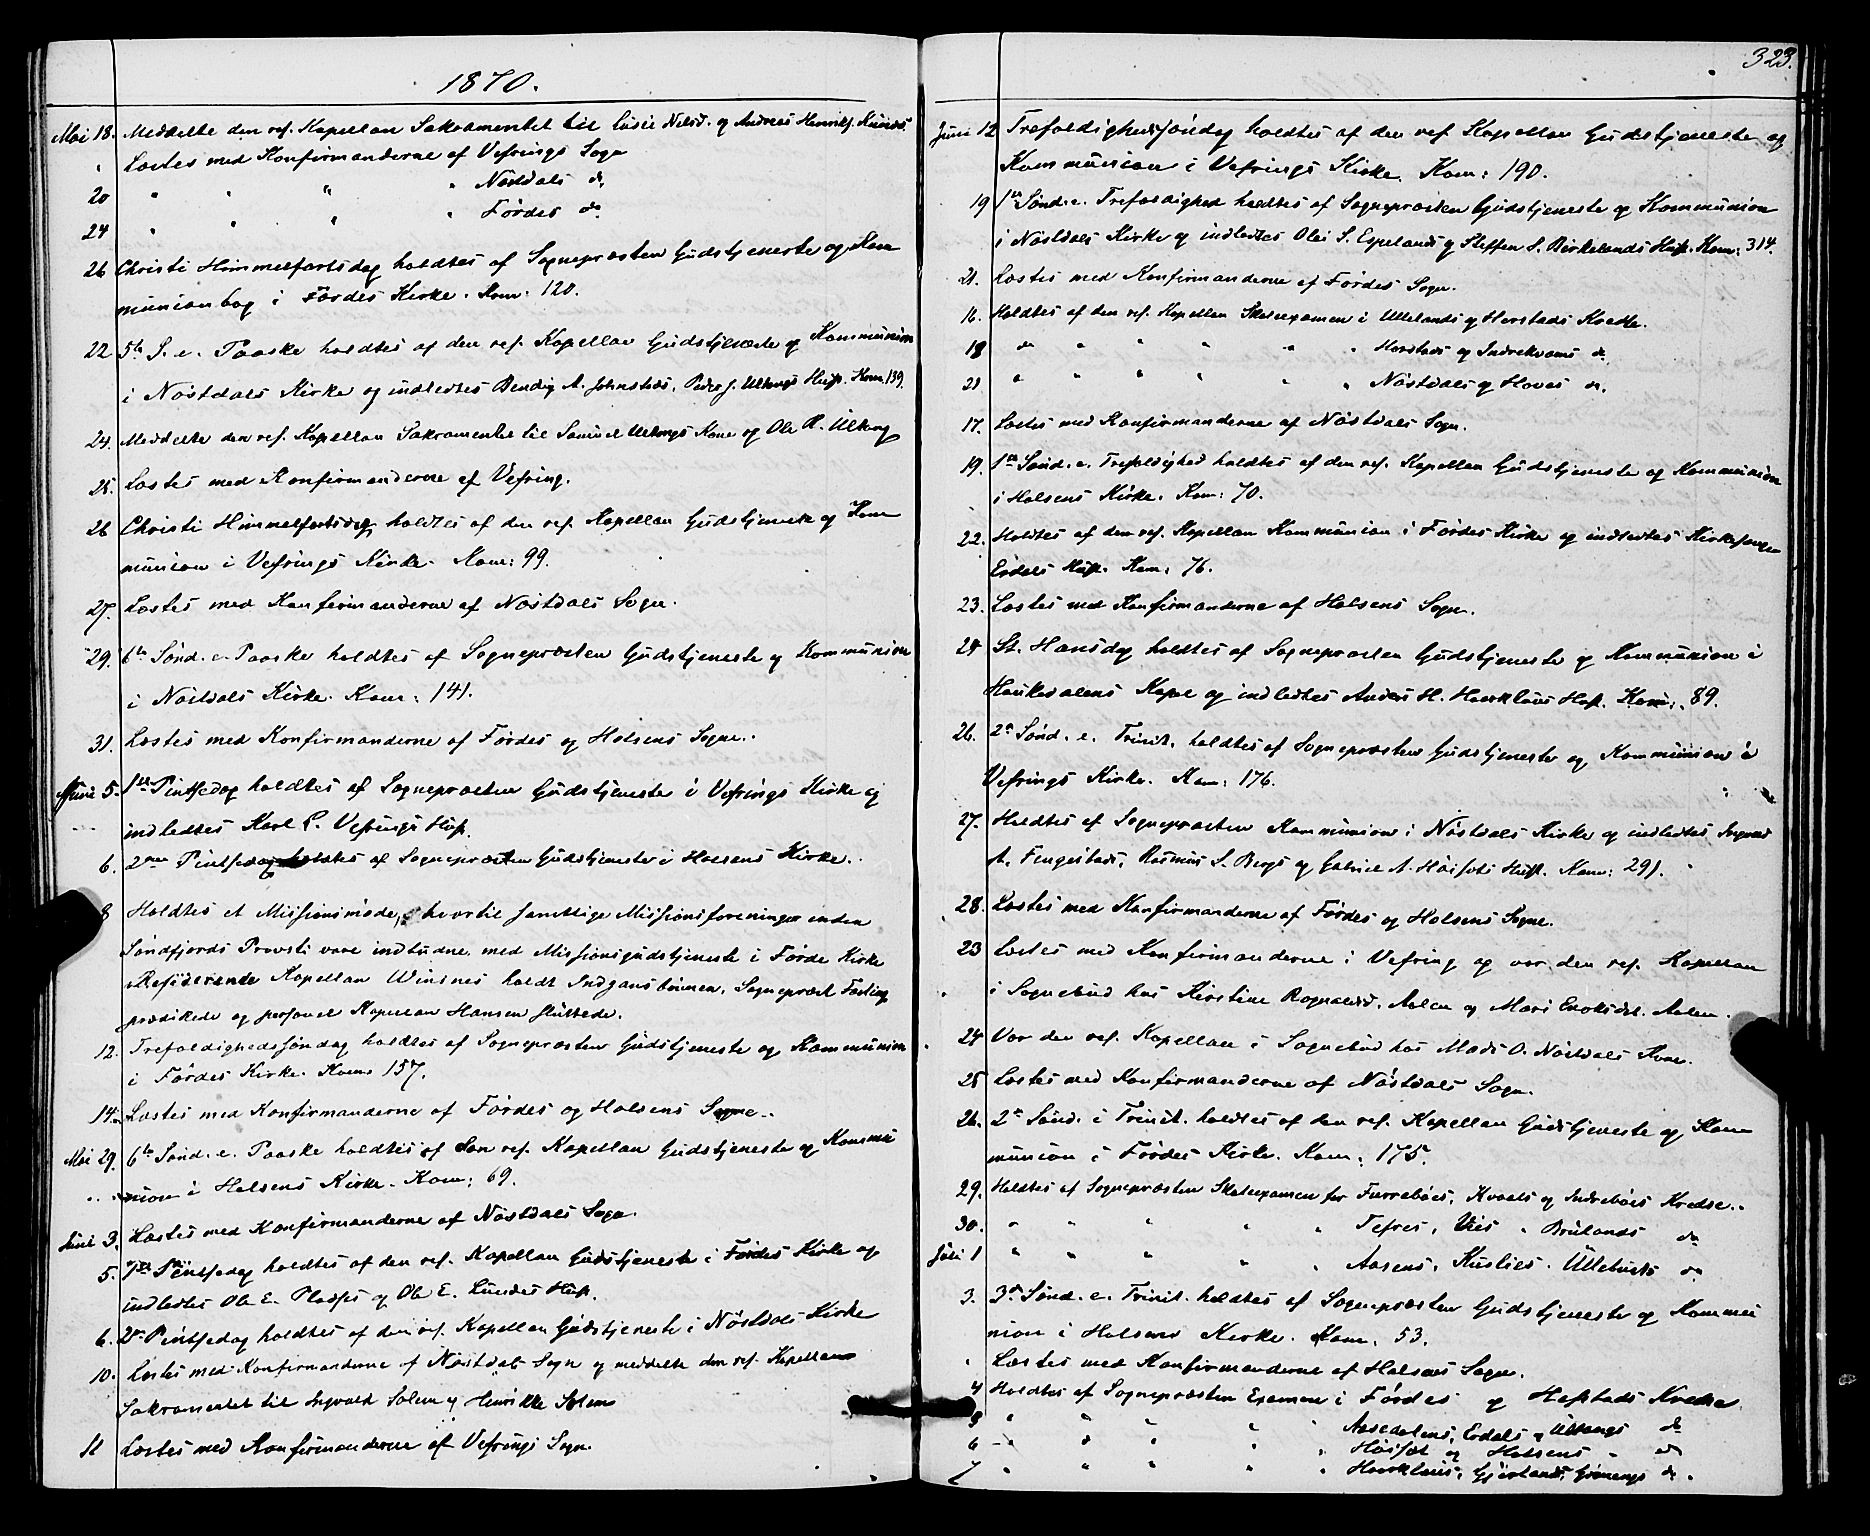 1870.
Mai 18. Meddelte den res. Kapellan Sakramentet til Lusie Nilsd. og Andreas Henriks.
" Læstes med Konfirmanderne af Vefrings Sogn
20 " " " " Nöstdals do
24 " " " " Førdes do
26 Christi Himmelfartsdag holdtes af Sognepræsten Gudstjeneste og Kom
munion i Førdes Kirke. Kom: 120.
22 5te S. e. Paaske holdtes af den res. Kapellan Gudstjeneste og Kommunion
i Nöstdals Kirke og indledtes Bendig A. Johnstads, Peder J. Hust. Kom. 139.
24. Meddelte den res. Kapellan Sakramentet til Samuel Kone og Ole R.
25. Læstes med Konfirmanderne af Vefring.
26 Christi Himmelfartsdag holdtes af den res. Kapellan Gudstjeneste og Kom
munion i Vefrings Kirke. Kom: 99.
27. Læstes med Konfirmanderne af Nöstdals Sogn.
29. 6te Sønd. e. Paaske holdtes af Sognepræsten Gudstjeneste og Kommunion
i Nöstdals Kirke. Kom: 141.
31. Læstes med Konfirmanderne af Førdes og Holsens Sogne.
Juni 5. 1ste Pintsedag holdtes af Sognepræsten Gudstjeneste i Vefrings Kirke og
indledtes Karl L. Vefrings Hust.
6. 2den Pintsedag holdtes af Sognepræsten Gudstjeneste i Holsens Kirke.
8 Holdtes et Missionsmøde, hvortil samtlige Missionsforeninger inden
Söndfjords Provsti vare indbudne, med Missionsgudstjeneste i Førde Kirke
Residerende Kapellan Winsnes holdt Indgangsbønnen, Sognepræst
prædikede og personel Kapellan Hansen sluttede.
12. Trefoldighedssøndag holdtes af Sognepræsten Gudstjeneste og Kommunion
i Førdes Kirke. Kom: 157.
14. Læstes med Konfirmanderne af Førdes og Holsens Sogne.
Mai 29. 6te Sønd. e. Paaske holdtes af den res. Kapellan Gudstjeneste og Kommu
nion i Holsens Kirke. Kom: 69.
Juni 3. Læstes med Konfirmanderne af Nöstdals Sogn.
5. 1ste Pintsedag holdtes af den res. Kapellan Gudstjeneste i Førdes Kirke og
indledtes Ole E. og Ole E. Lundes Hust.
6. 2den Pintsedag holdtes af den res. Kapellan Gudstjeneste i Nöstdals Kirke
10. Læstes med Konfirmanderne af Nöstdals Sogn og meddelte den res. Kapellan
Sakramentet til Ingvald Solem og Henrikke Solem
11 Læstes med Konfirmanderne af Vefrings Sogn.
323.
Juni 12 Trefoldighedssøndag holdtes af den res. Kapellan Gudstjeneste og
Kommunion i Vefrings Kirke. Kom: 190.
19 1ste Sønd. e. Trefoldighed holdtes af Sognepræsten Gudstjeneste og Kommunion
i Nöstdals Kirke og indledtes Olai S. Espelands og Steffen S. Birkelands Hust. Kom: 314.
21. Læstes med Konfirmanderne af Førdes Sogn.
16. Holdtes af den res. Kapellan Skoleexamen i Ullelands og Horstads Kredse.
18 do " " " " " Horstads og Indrekvams do.
21 " " " " " " Nöstdals og Hoves do.
17. Læstes med Konfirmanderne af Nöstdals Sogn.
19. 1ste Sønd. e. Trefoldighed holdtes af den res. Kapellan Gudstjeneste og Kommunion
i Holsens Kirke. Kom: 70.
22. Holdtes af den res. Kapellan Kommunion i Førdes Kirke og indledtes Kirkesanger
Erdals Hust. Kom: 76.
23. Læstes med Konfirmanderne af Holsens Sogn.
24 St. Hansdag holdtes af Sognepræsten Gudstjeneste og Kommunion i
Haukedalens Kapel og indledtes Anders H. Hust. Kom: 89.
26. 2den Sønd. e. Trinit. holdtes af Sognepræsten Gudstjeneste og Kommunion i
Vefrings Kirke. Kom: 176.
27. Holdtes af Sognepræsten Kommunion i Nöstdals Kirke og indledtes
A. Rasmus S. Bergs og Gabriel A. Hust. Kom: 291.
28. Læstes med Konfirmanderne af Førdes og Holsens Sogne.
23 Læstes med Konfirmanderne i Vefring og var den res. Kapellan
i Sognebud hos Kirstine Rognaldsd. Aalen og Mari Aalen.
24 Var den res. Kapellan i Sognebud hos Mads O. Nöstdals Kone.
25 Læstes med Konfirmanderne af Nöstdals Sogn.
26. 2den Sønd. e Trinit. holdtes af den res. Kapellan Gudstjeneste og Kom
munion i Førdes Kirke. Kom: 175.
29. Holdtes af Sognepræsten Skoleexamen for Furrebøes, Kvaals og Indrebøes Kredse.
30. " " " " " Tefres, Vies " Brulands do
Juli 1 " " " " " Aasens, Kuslies, do
3. 3die Sønd. e. Trinit. holdtes af Sognepræsten Gudstjeneste og Kommu
nion i Holsens Kirke. Kom. 53.
" Læstes med Konfirmanderne af Holsens Sogn.
4 Holdtes af Sognepræsten Examen i Førdes og Hafstads Kredse
5 " " " " Aasedalens, Erdals do
6 " " " " og Holsens do
7 " " " " " do.